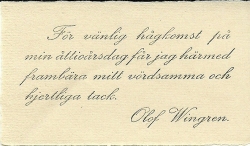 För vänlig hågkomst på
min åttioårsdag får jag härmed
frambära mitt vördsamma och
hjertliga tack.
Olof Wingren.